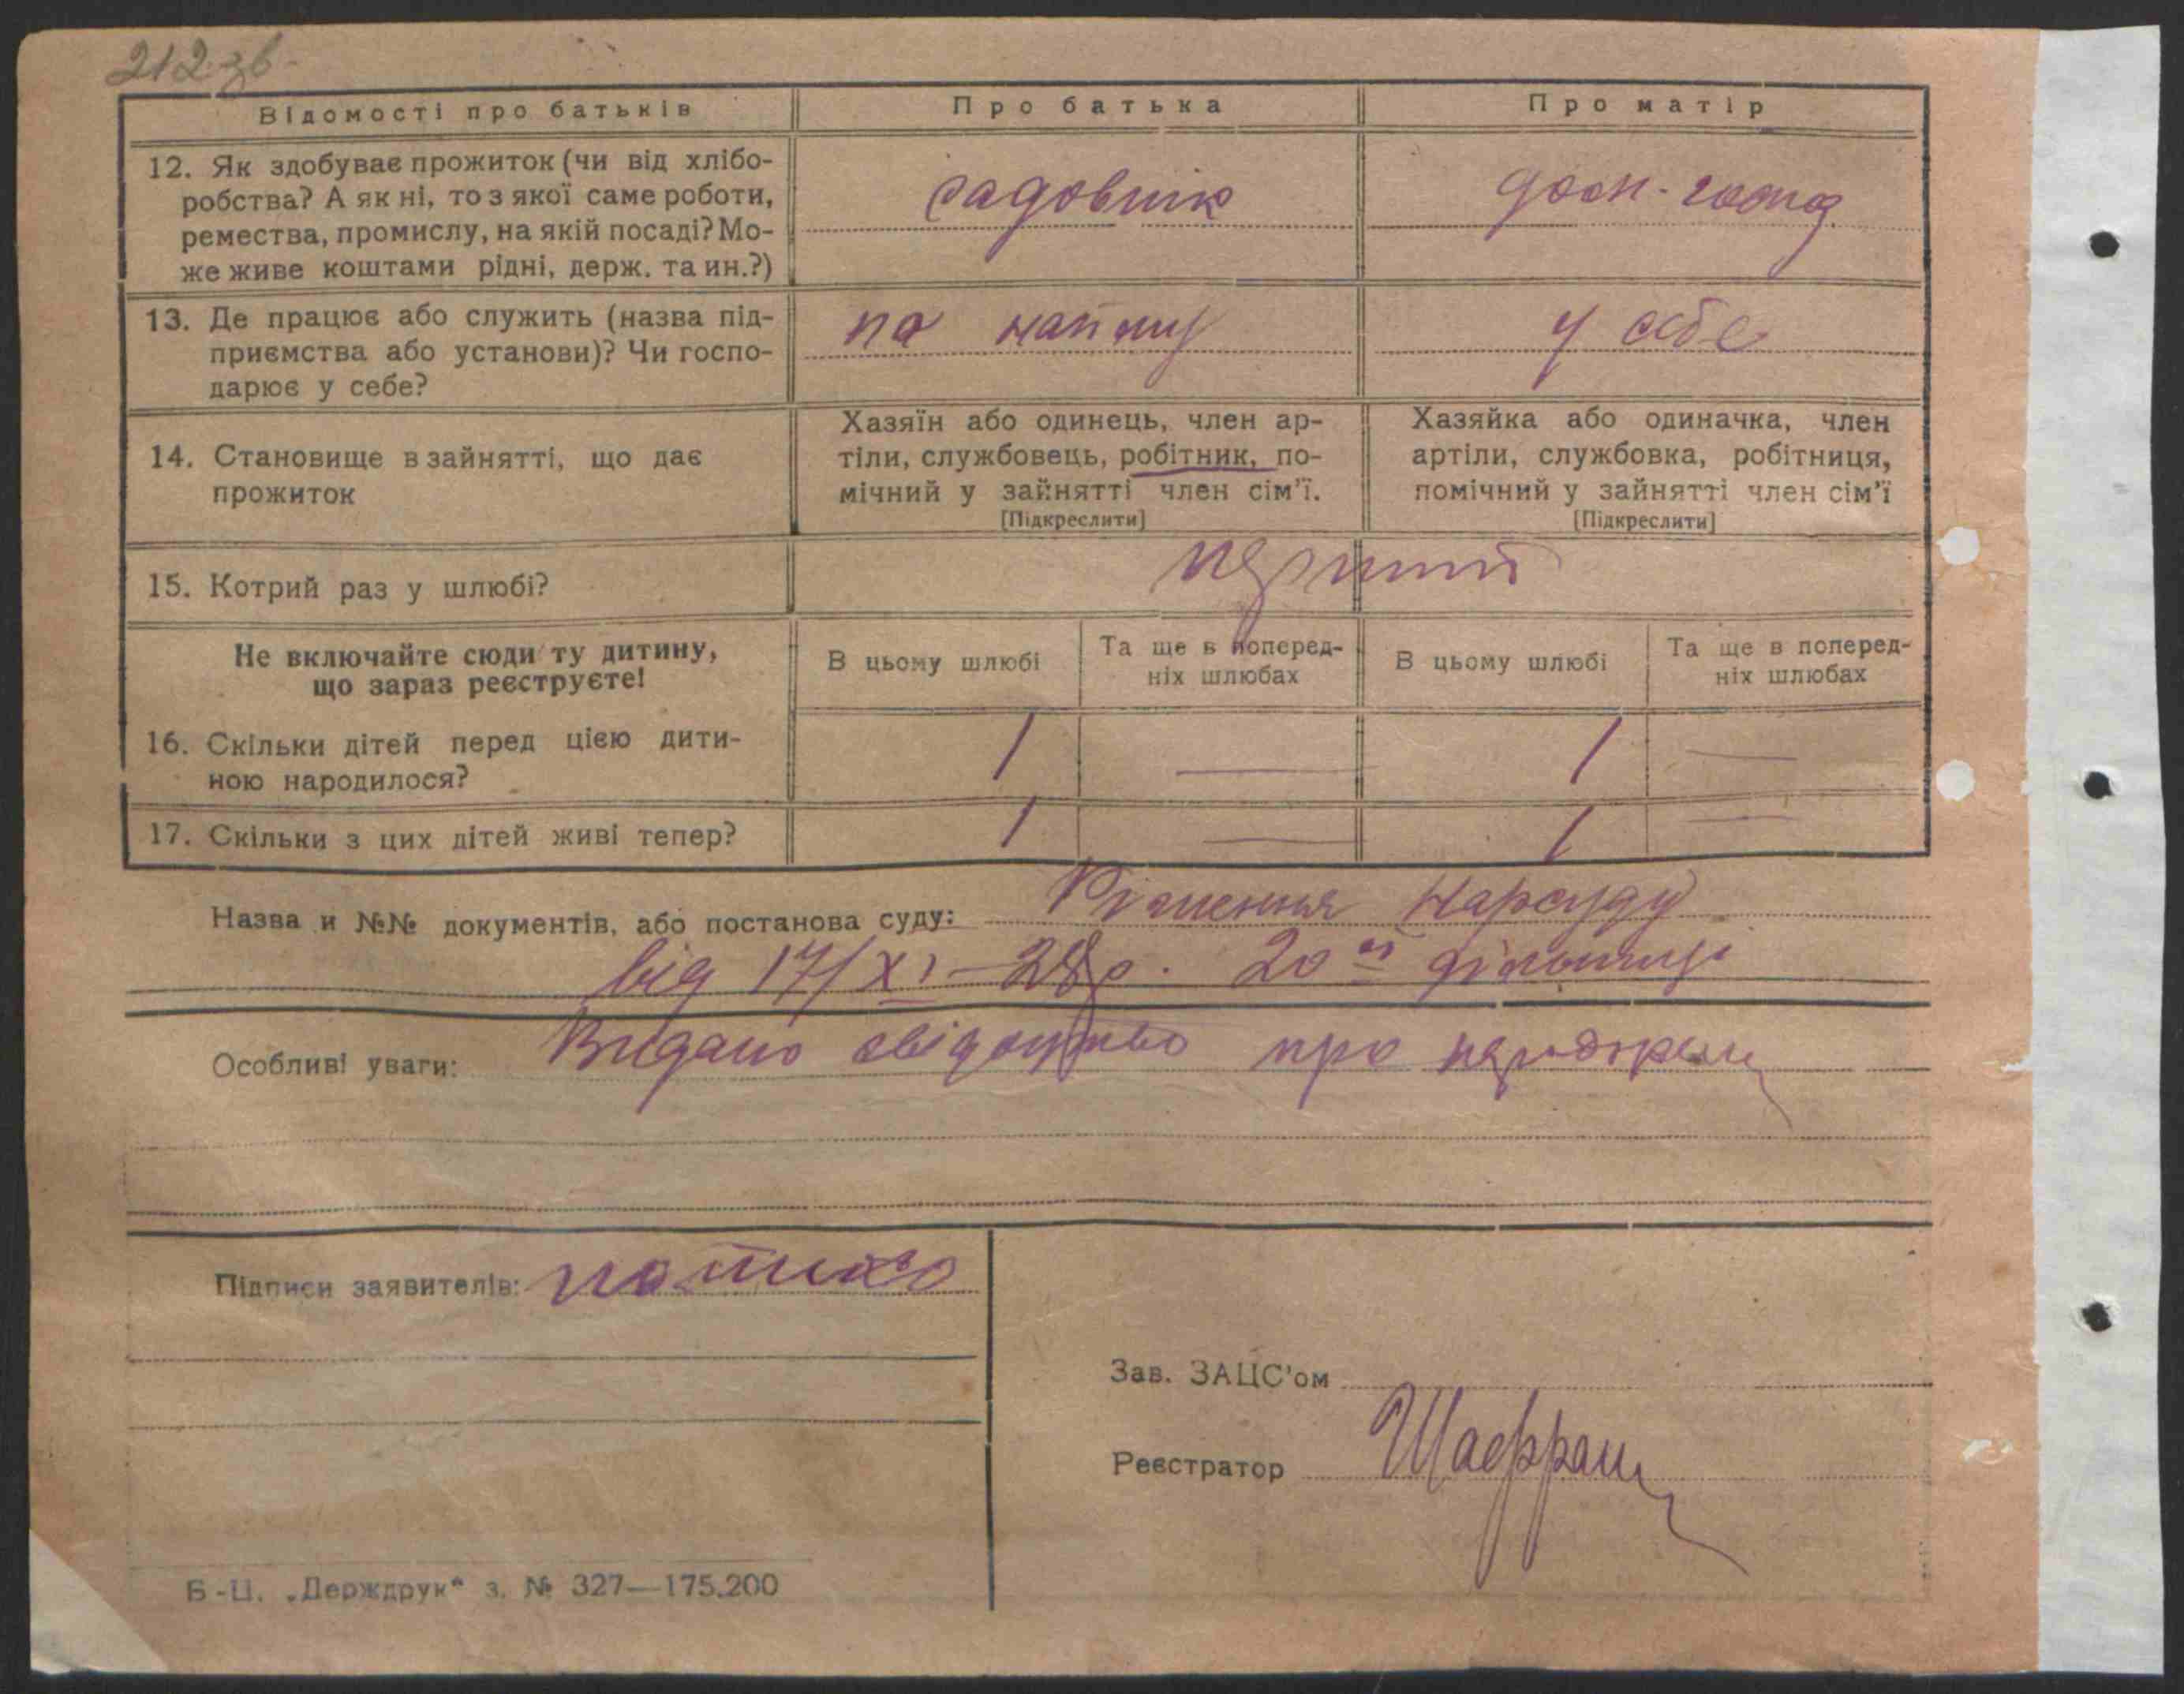 212 зв.
Відомості про батьків
Про батька
Про матір
12. Як здобуває прожиток (чи від хлібо-
робства? А як ні, то з якої саме роботи,
ремества, промислу, на якій посаді? Мо-
же живе коштами рідні, держ. та ин.?)
садовнік
дом. госпд.
13. Де працює або служить (назва під-
приємства або установи)? Чи госпо-
дарює у себе?
по найму
у себе
14. Становище в зайнятті, що дає
прожиток
Хазяїн або одинець, член ар-
тіли, службовець, робітник, по-
мічний у зайнятті член сім'ї.
[Підкреслити]
Хазяйка або одиначка, член
артіли, службовка, робітниця,
помічний у зайнятті член сім'ї
[Підкреслити]
15. Котрий раз у шлюбі?
перший
Не включайте сюди ту дитину,
що зараз реєструєте!
В цьому шлюбі
Та ще в поперед-
ніх шлюбах
В цьому шлюбі
Та ще в поперед-
ніх шлюбах
16. Скільки дітей перед цією дити-
ною народилося?
1 — 1 —
17. Скільки з цих дітей живі тепер?
1 — 1 —
Назва и №№ документів, або постанова суду: Рішення Нарсуду
від 17/XI–28р. 20ої дільниці
Особливі уваги: Видано свідоцтво про
Підписи заявителів:
Зав. ЗАЦС'ом
Реєстратор
Б-Ц. „Держдрук“ з. № 327—175.200